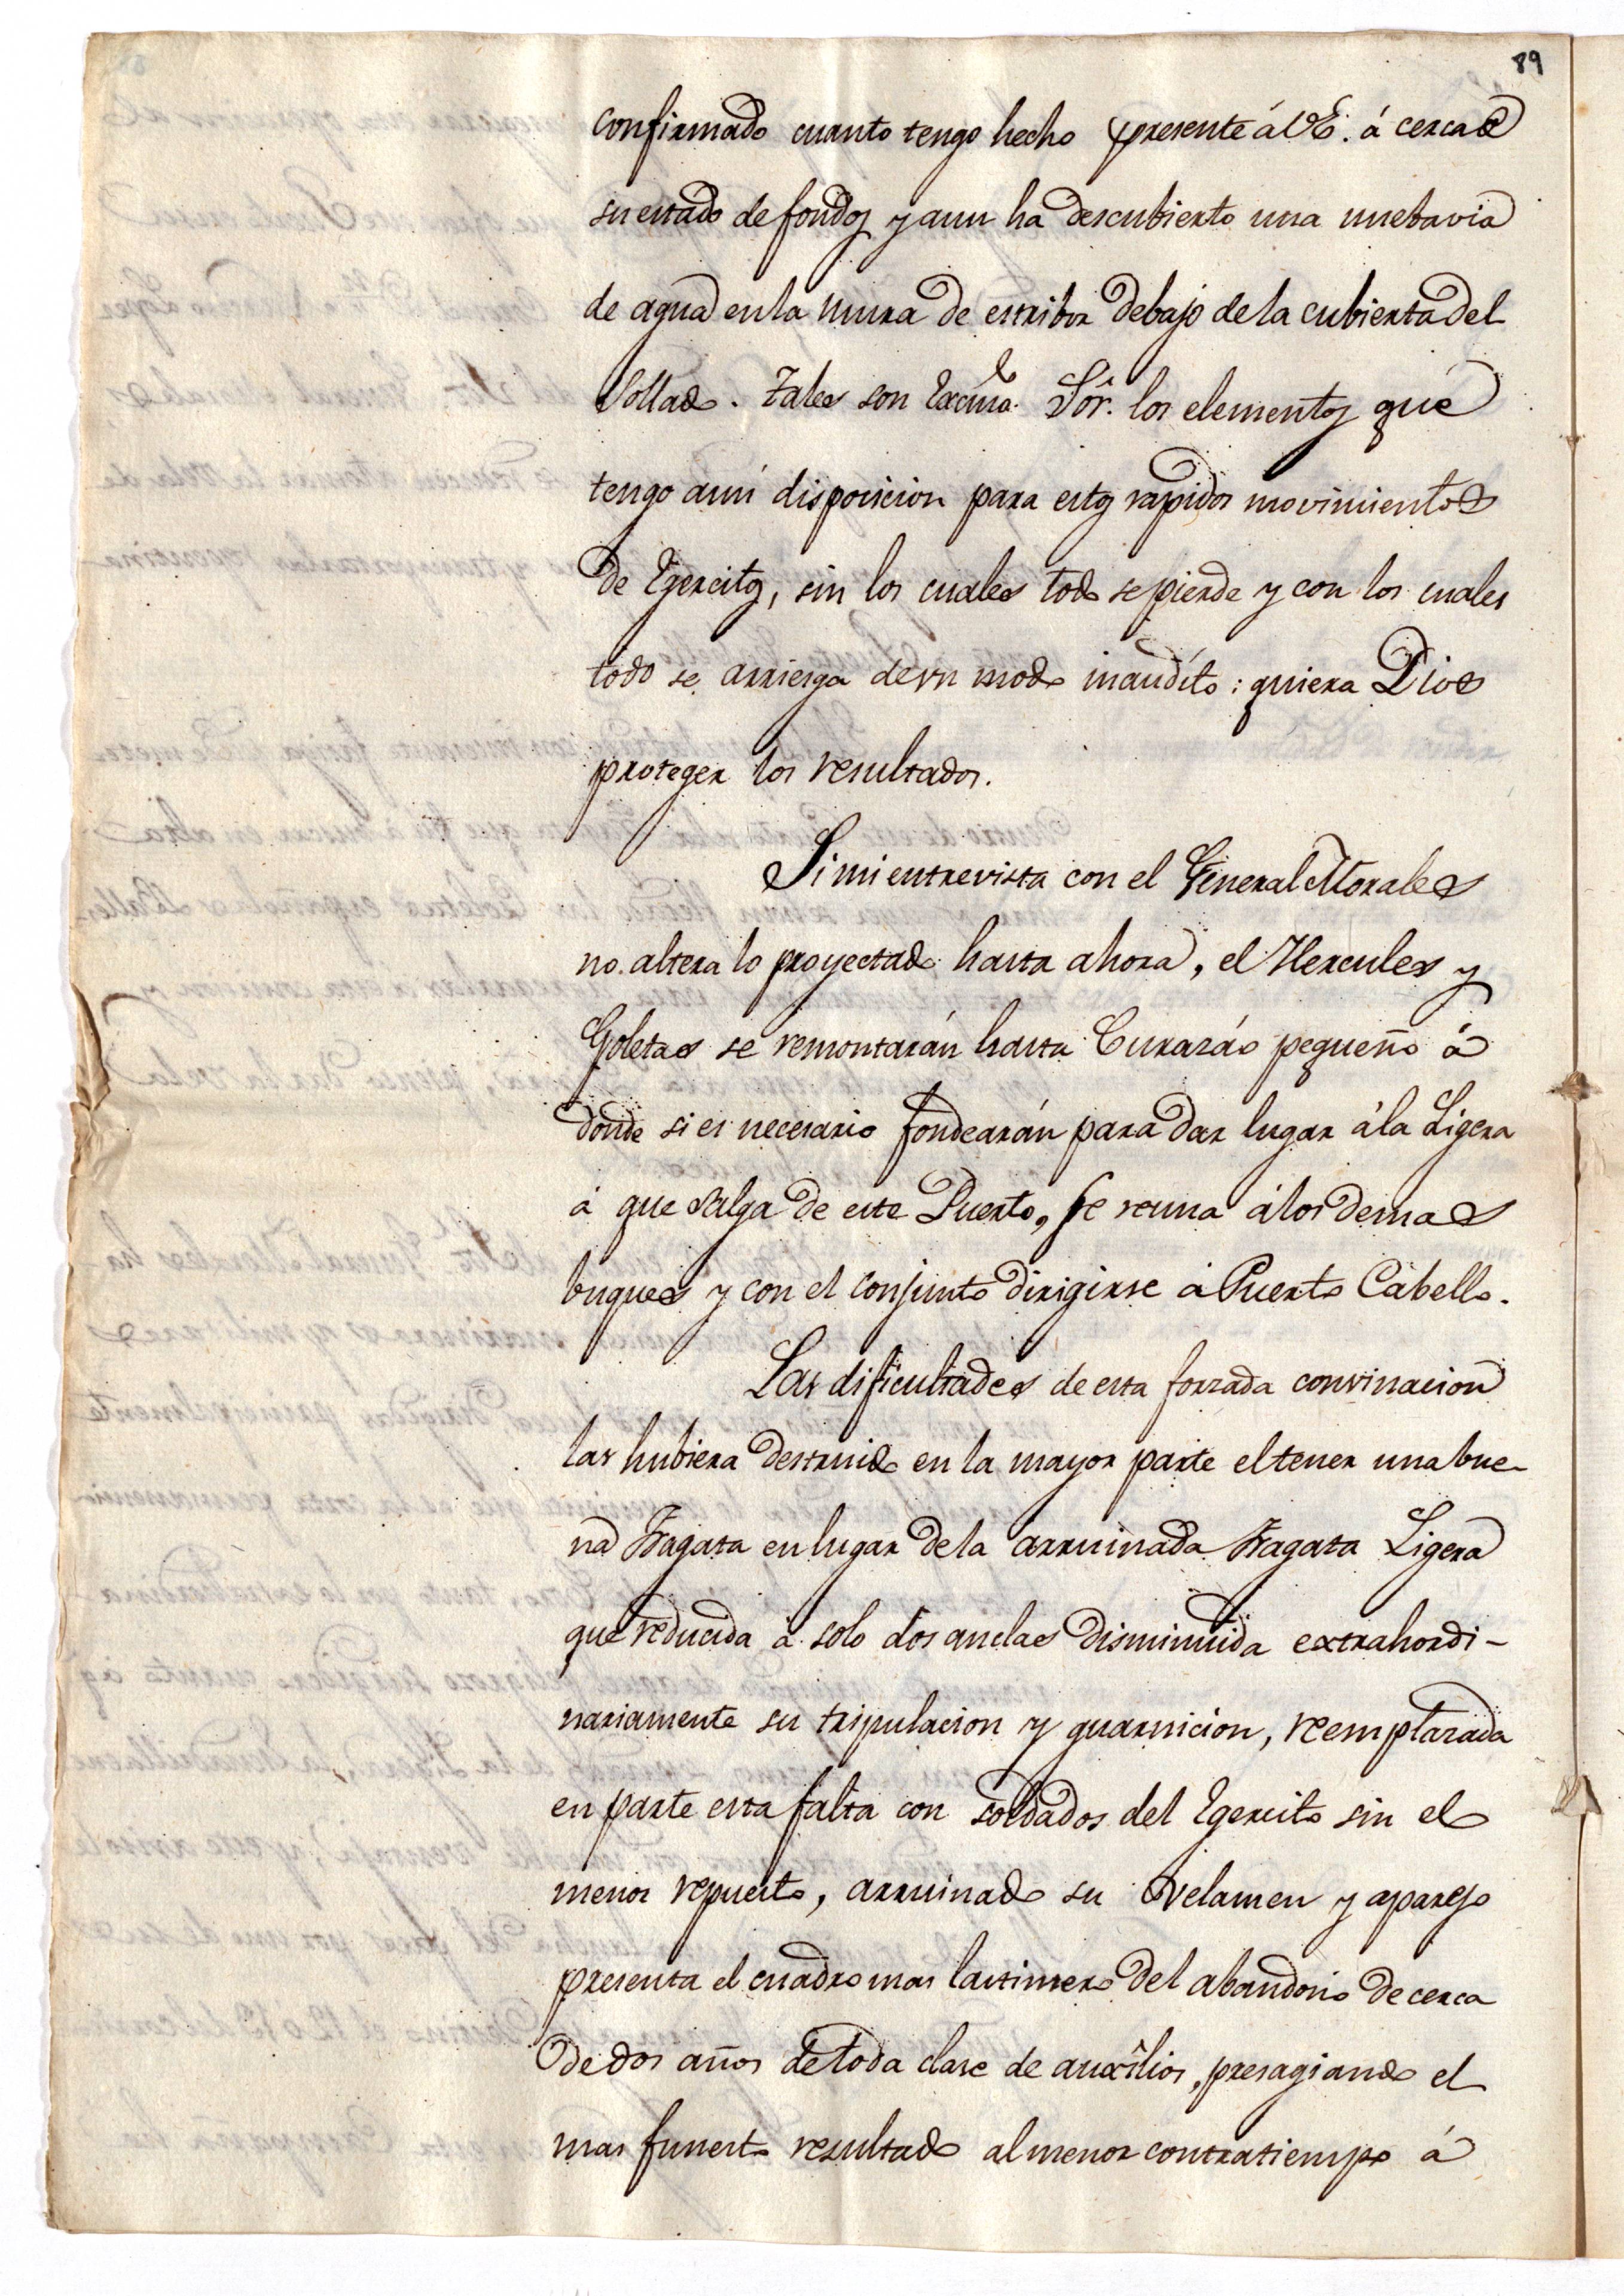 89
confirmado cuanto tengo hecho presente á VE. á cerca de
su estado de fondos y aun ha descubierto una nueba via
de agua en la mura de estribor debajo de la cubierta del
Sollado. Tales son Excmo. Sôr. los elementos que
tengo ami disposicion para estos rapidos movimientos
de Egercitos, sin los cuales todo se pierde y con los cuales
todo se arriesga de un modo inaudito: quiera Dios
proteger los resultados.
Si mi entrevista con el General Morales
no altera lo proyectado hasta ahora, el Hercules y
Goletas se remontarán hasta Curazáo pequeño á
donde si es necesario fondearán para dar lugar á la Ligera
á que salga de este Puerto, se reuna á los demas
buques y con el conjunto dirigirse á Puerto Cabello.
Las dificultades de esta forzada convinacion
las hubiera destruido en la mayor parte el tener una bue-
na Fragata en lugar de la arruinada Fragata Ligera
que reducida á solo dos anclas disminuida extrahordi-
nariamente su tripulacion y guarnicion, reemplazada
en parte esta falta con soldados del Egercito sin el
menor repuesto, arruinado su velamen y aparejo
presenta el cuadro mas lastimero del abandono de cerca
de dos años de toda clase de auxîlios, presagiando el
mas funesto resultado al menor contratiempo á